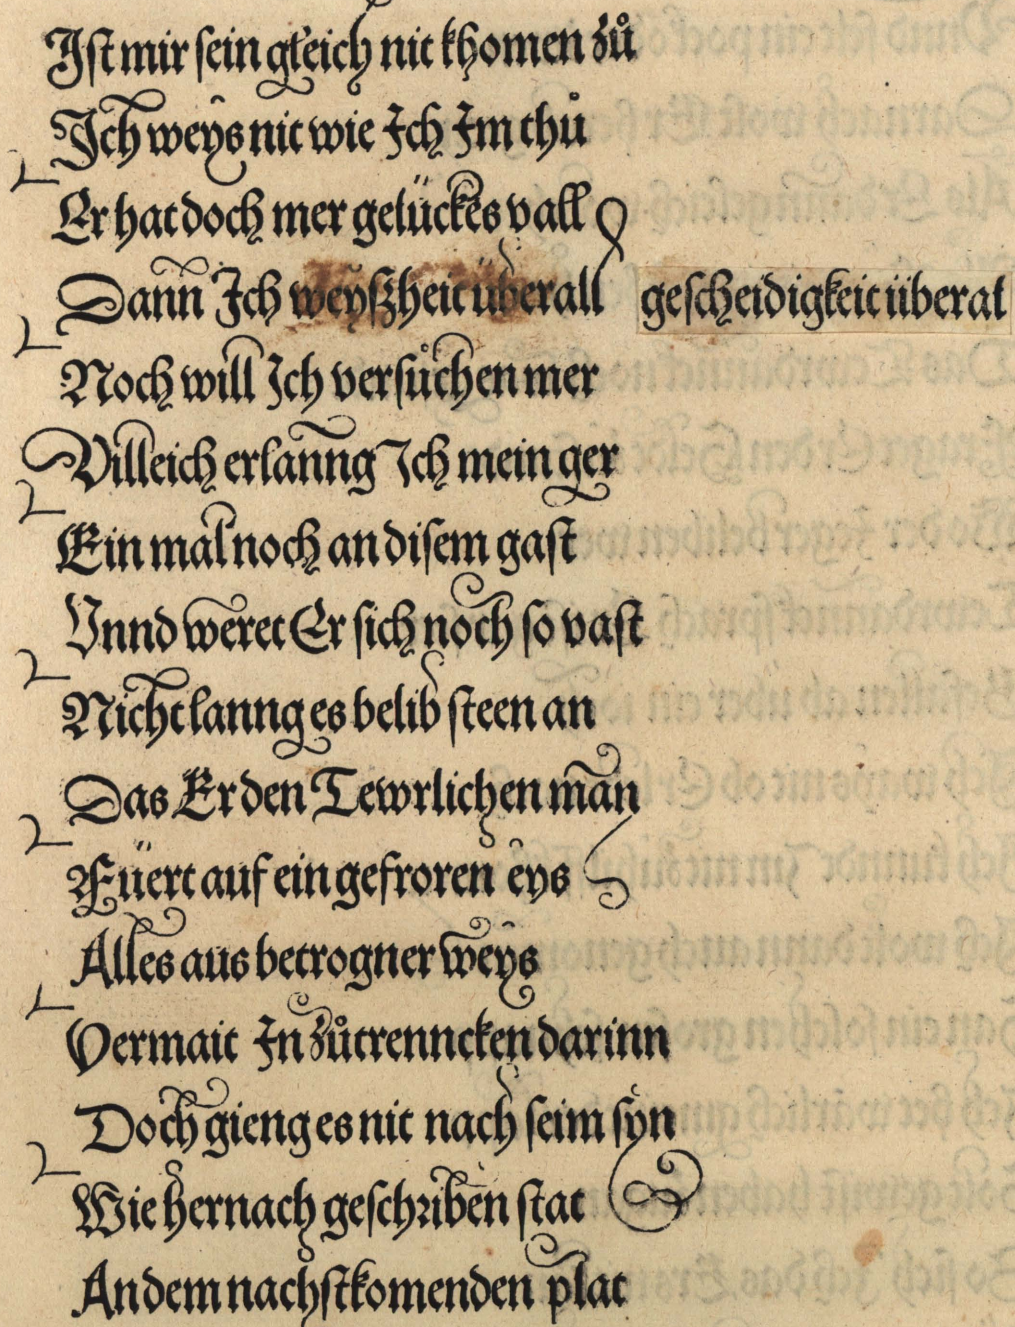 Ist mir sein gleich nit khomen zů
Ich weys nit wie Ich Im thů
Er hat doch mer gelückes vall
Dann Ich weyszheit überall gescheidigkeit überal
Noch will Ich versůchen mer
Villeich erlanng Ich mein ger
Ein mal noch an disem gast
Vnnd weret Er sich noch so vast
Nicht lanng es belib steen an
Das Er den Tewrlichen man
Füert auf ein gefroren eys
Alles aus betrogner weys
Vermait In zůtrenncken darinn
Doch gieng es nit nach seim syn
Wie hernach geschriben stat
An dem nachstkomenden plat